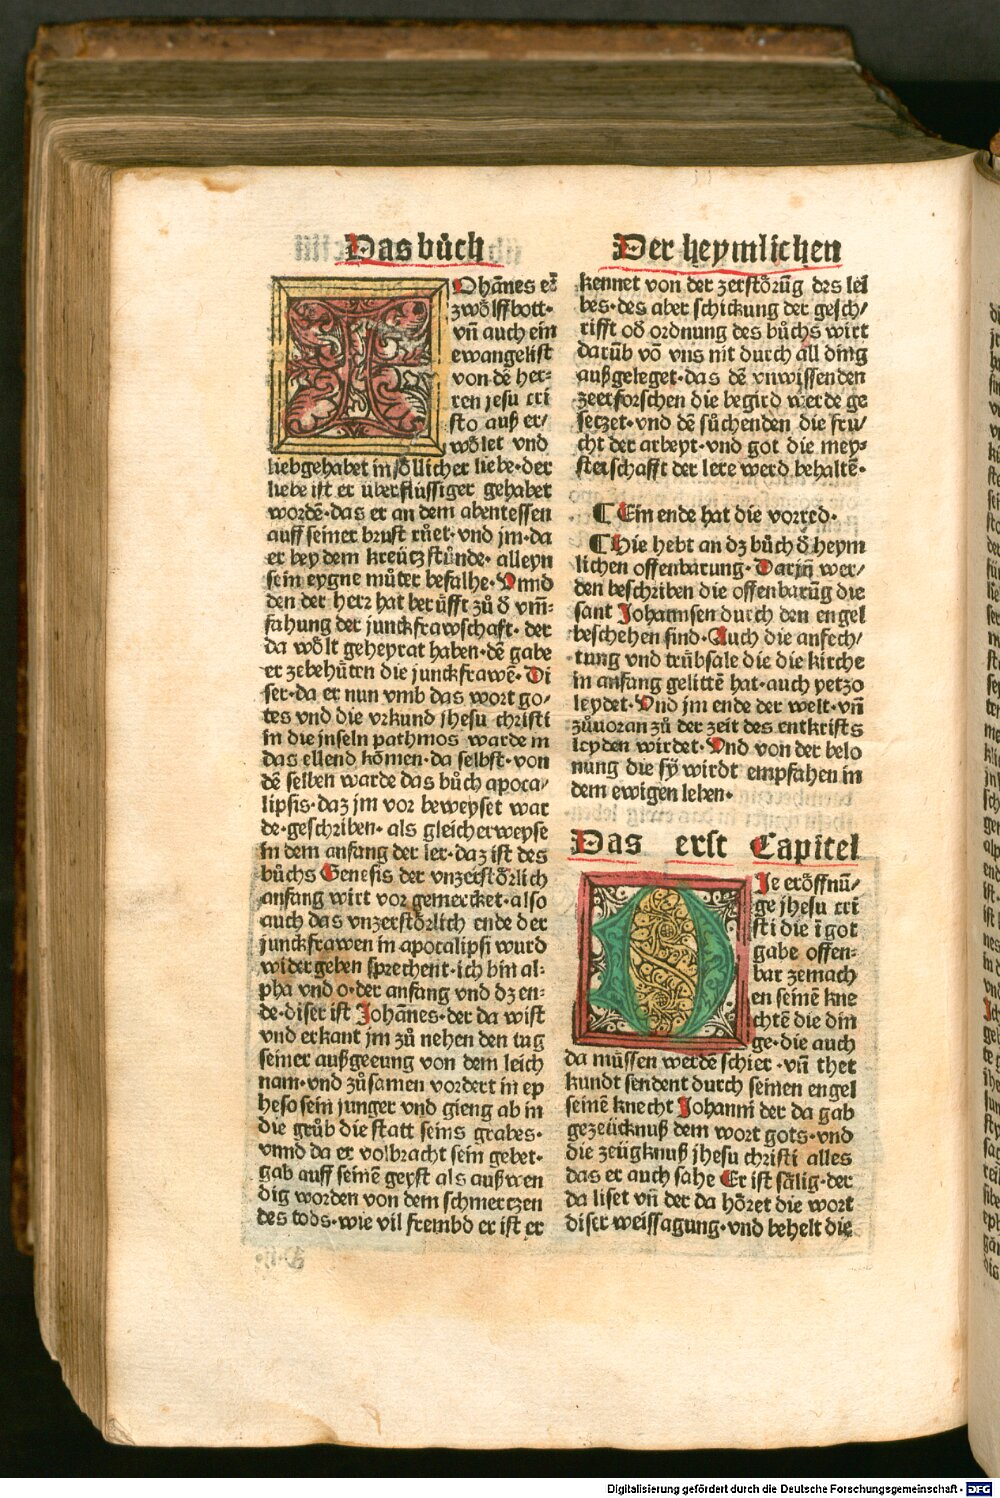 Das bůch
IOhānes eī
zwoͤlffbott·
vn̄ auch ein
ewangelist
von dē her-
ren jesu cri
sto auß er/
woͤlet vnd
liebgehabet in soͤllicher liebe·der
liebe ist er überflüssiger gehabet
wordē·das er an dem abentessen
auff seiner brust růet·vnd jm·da
er bey dem kreütz stůnde·alleyn
sein eygne můter befalhe·Vnnd
den der herr hat berůfft zů ð vm̄-
fahung der junckfrawschaft·der
da woͤlt geheyrat haben·dē gabe
er zebehütten die junckfrawē·Di
ser·da er nun vmb das wort go/
tes vnd die vrkund jhesu christi
in die jnseln pathmos warde in
das ellend koͤmen·da selbst·von
dē selben warde das bůch apoca/
lipsis·daz jm vor beweyset war
de·geschriben·als gleicherweyse
in dem anfang der ler·daz ist des
bůchs Genesis der vnzerstoͤrlich
anfang wirt vor gemercket·also
auch das vnzerstoͤrlich ende der
junckfrawen in apocalipsi wurd
widergeben sprechent·ich bin al-
pha vnd o·der anfang vnd dz en-
de·diser ist Johānes·der da wist
vnd erkant jm zů nehen den tag
seiner außgeeung von dem leich
nam·vnd zůsamen vordert in ep
heso sein junger vnd gieng ab in
die grůb die statt seins grabes·
vnnd da er volbracht sein gebet·
gab auff seinē geyst als außwen
dig worden von dem schmertzen
des tods·wie vil frembd er ist er
Der heymlichen
kennet von der zerstoͤrūg des lei
bes·des aber schickung der gesch/
rifft oð ordnung des bůchs wirt
darūb vō vns nit durch all ding
außgeleget·das dē vnwissenden
zeerforschen die begird werde ge
setzet·vnd dē sůchenden die fru/
cht der arbeyt·vnd got die mey/
sterschafft der lere werd behaltē·
¶ Ein ende hat die vorred·
¶ Hie hebt an dz bůch ð heym
lichen offenbarung·Darin̄ wer/
den beschriben die offenbarūg die
sant Johannsen durch den engel
beschehen sind·Auch die anfech/
tung vnd trübsale die die kirche
in anfang gelittē hat·auch yetzo
leydet·Vnd jm ende der welt·vn̄
zůuoran zů der zeit des entkrists
leyden wirdet·Vnd von der belo
nung die sy̋ wirdt empfahen in
dem ewigen leben·
Das erst Capitel
DIe eroͤffnū/
ge jhesu cri
sti die ī got
gabe offen-
bar zemach
en seinē kne
chtē die din
ge·die auch
da müssen werdē schier·vn̄ thet
kundt sendent durch seinen engel
seinē knecht Johanni der da gab
gezeücknuß dem wort gots·vnd
die zeügknuß jhesu christi alles
das er auch sahe Er ist saͤlig·der
da liset vn̄ der da hoͤret die wort
diser weissagung·vnd behelt die
Digitalisierung gefördert durch die Deutsche Forschungsgemeinschaft · DFG